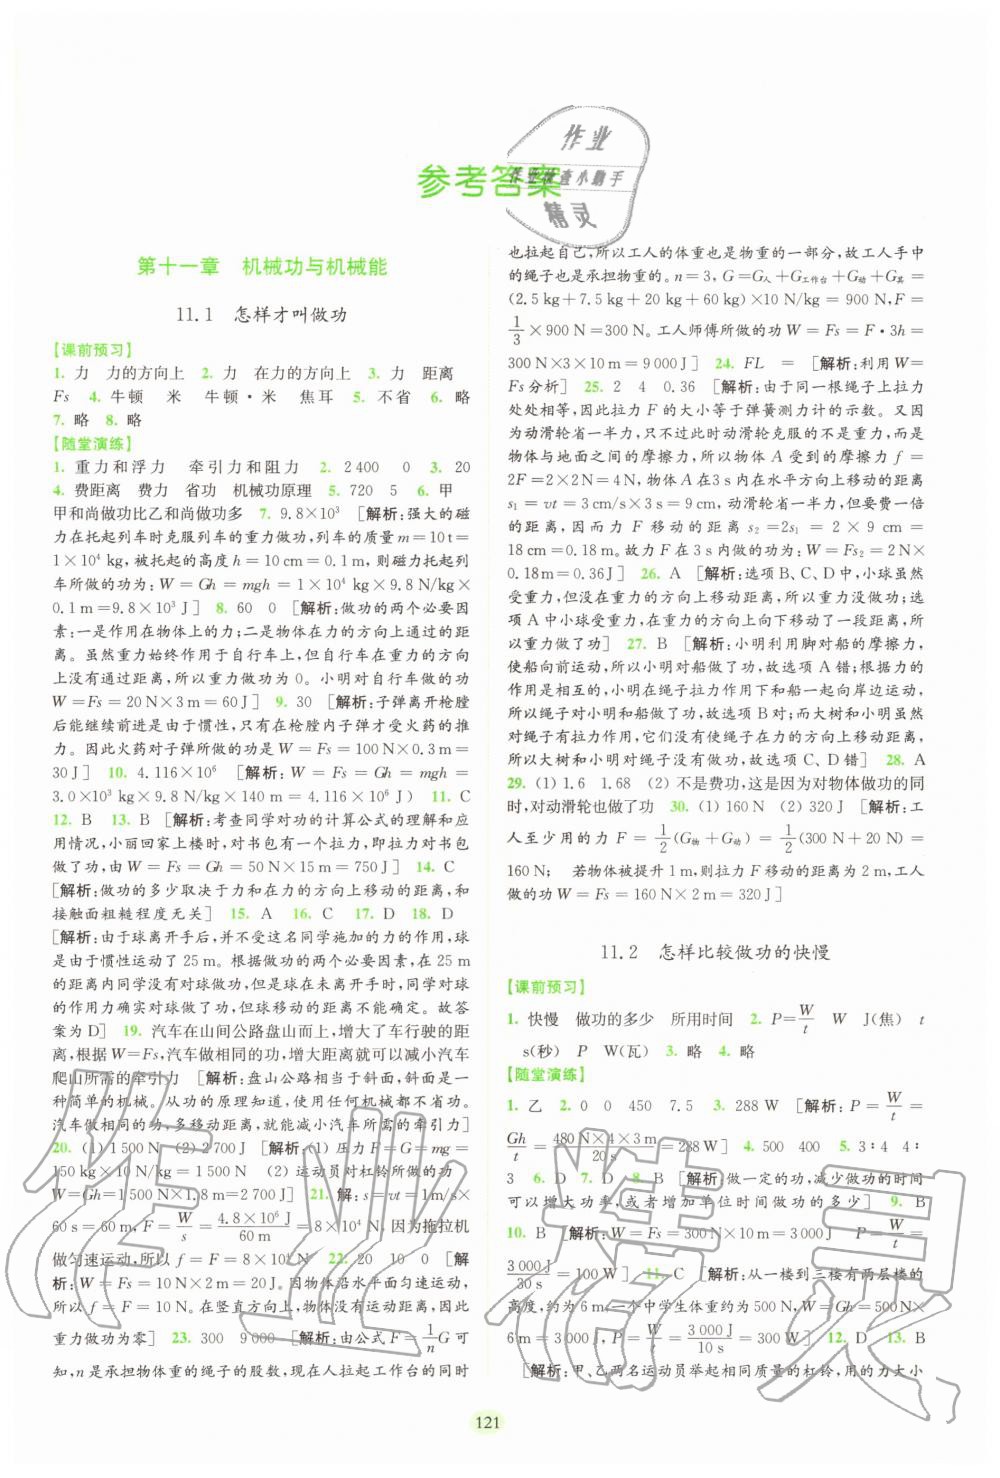 参考答案
作业
作业检查小助手
精灵
第十一章 机械功与机械能
11.1 怎样才叫做功
【课前预习】
1. 力 力的方向上 2. 力 在力的方向上 3. 力 距离
Fs 4. 牛顿 米 牛顿·米 焦耳 5. 不省 6. 略
7. 略 8. 略
【随堂演练】
1. 重力和浮力 牵引力和阻力 2. 2 400 0 3. 20
4. 费距离 费力 省功 机械功原理 5. 720 5 6. 甲
甲和尚做功比乙和尚做功多 7. 9.8×10³ [解析:强大的磁
力在托起列车时克服列车的重力做功,列车的质量m=10 t=
1×10⁴ kg,被托起的高度h=10 cm=0.1 m,则磁力托起列
车所做的功为:W=Gh=mgh=1×10⁴ kg×9.8 N/kg×
0.1 m=9.8×10³ J] 8. 60 0 [解析:做功的两个必要因
素:一是作用在物体上的力;二是物体在力的方向上通过的距
离。虽然重力始终作用于自行车上,但自行车在重力的方向
上没有通过距离,所以重力做功为0。小明对自行车做的功
W=Fs=20 N×3 m=60 J] 9. 30 [解析:子弹离开枪膛
后能继续前进是由于惯性,只有在枪膛内子弹才受火药的推
力。因此火药对子弹所做的功是W=Fs=100 N×0.3 m=
30 J] 10. 4.116×10⁶ [解析:W=Fs=Gh=mgh=
3.0×10³ kg×9.8 N/kg×140 m=4.116×10⁶ J) 11. C
12. B 13. B [解析:考查同学对功的计算公式的理解和应
用情况,小丽回家上楼时,对书包有一个拉力,即拉力对书包
做了功,由W=Fs=Gh=50 N×15 m=750 J] 14. C
[解析:做功的多少取决于力和在力的方向上移动的距离,和
接触面粗糙程度无关] 15. A 16. C 17. D 18. D
[解析:由于球离开手后,并不受这名同学施加的力的作用,球
是由于惯性运动了25 m。根据做功的必要条件,在这25 m
的距离内同学没有对球做功,但是球在未离开手时,同学对球
的作用力确实对球做了功,但球移动的距离不能确定。故答
案为D] 19. 汽车在山间公路盘山而上,增大了车行驶的距
离,根据W=Fs,汽车做相同的功,增大距离就可以减小汽车
爬山所需的牵引力 [解析:盘山公路相当于斜面,斜面是一
种简单的机械。从功的原理知道,使用任何机械都不省功。
汽车做相同的功,多走距离,就能减小汽车所需的牵引力]
20. (1) 1 500 N (2) 2 700 J [解析:(1) 压力F=G=mg=
150 kg×10 N/kg=1 500 N (2) 运动员对杠铃所做的功
W=Gh=1 500 N×1.8 m=2 700 J] 21. 解:s=vt=1 m/s×
60 s=60 m,F=W/s=4.8×10⁶ J/60 m=8×10⁴ N,因为拖拉机
做匀速运动,所以f=F=8×10⁴ N 22. 20 10 0 [解
析:W=Fs=10 N×2 m=20 J。因物体沿水平面匀速运动,
所以f=F=10 N。在竖直方向上,物体没有移动距离,因此
重力做功为零] 23. 300 9 000 [解析:由公式F=1/n G可
知,n是承担物体重的绳子的股数,现在人拉起工作台的同时
也拉起自己,所以工人的体重也是物重的一部分,故工人手中
的绳子也是承担物重的。n=3,G=G人+G工作台+G动+G其=
(2.5 kg+7.5 kg+20 kg+60 kg)×10 N/kg=900 N,F=
1/3×900 N=300 N。工人师傅所做的功W=Fs=F·3h=
300 N×3×10 m=9 000 J] 24. FL = [解析:利用W=
Fs分析] 25. 2 4 0.36 [解析:由于同一根绳子上拉力
处处相等,因此拉力F的大小等于弹簧测力计的示数。又因
为动滑轮省一半力,只不过此时动滑轮克服的不是重力,而是
物体与地面之间的摩擦力,所以物体A受到的摩擦力f=
2F=2×2 N=4 N,物体A在3 s内在水平方向上移动的距离
s₁=vt=3 cm/s×3 s=9 cm,动滑轮省一半力,但要费一倍
的距离,因而力F移动的距离s₂=2s₁=2×9 cm=
18 cm=0.18 m。故力F在3 s内做的功为:W=Fs₂=2 N×
0.18 m=0.36 J] 26. A [解析:选项B、C、D中,小球虽然
受重力,但没在重力方向上移动距离,所以重力没做功;选
项A中小球受重力,在重力的方向上向下移动了一段距离,所
以重力做了功] 27. B [解析:小明利用脚对船的摩擦力,
使船向前运动,所以小明对船做了功,故选项A错;根据力的
作用是相互的,小明在绳子拉力作用下和船一起向岸边运动,
所以绳子对小明和船做了功,故选项B对;而大树和小明虽然
对绳子有拉力作用,它们没有使绳子在力的方向上移动距离,
所以大树和小明对绳子都没有做功,故选项C、D错] 28. A
29. (1) 1.6 1.68 (2) 不是费功,这是因为对物体做功的同
时,对动滑轮也做了功 30. (1) 160 N (2) 320 J [解析:工
人至少用的力F=1/2(G物+G动)=1/2(300 N+20 N)=
160 N; 若物体被提升1 m,则拉力F移动的距离为2 m,工人
做的功W=Fs=160 N×2 m=320 J]
11.2 怎样比较做功的快慢
【课前预习】
1. 快慢 做功的多少 所用时间 2. P=W/t W J(焦) t
s(秒) P W(瓦) 3. 略 4. 略
【随堂演练】
1. 乙 2. 0 0 450 7.5 3. 288 W [解析:P=W/t=
Gh/t=480 N×4×3 m/20 s=288 W] 4. 500 400 5. 3∶4 4∶
3 6. D 7. D 8. B [解析:做一定的功,减少做功的时间
可以增大功率,或者增加单位时间做功的多少] 9. B
10. B [解析:W=Fs=300 N×10 m=3 000 J P=W/t=
3 000 J/30 s=100 W] 11. C [解析:从一楼到三楼有两层楼的
高度,约为6 m,一个中学生体重约为500 N,W=Gh=500 N×
6 m=3 000 J,P=W/t=3 000 J/10 s=300 W] 12. D 13. B
[解析:甲、乙两名运动员举起相同质量的杠铃,用的力大小
121
作业精灵